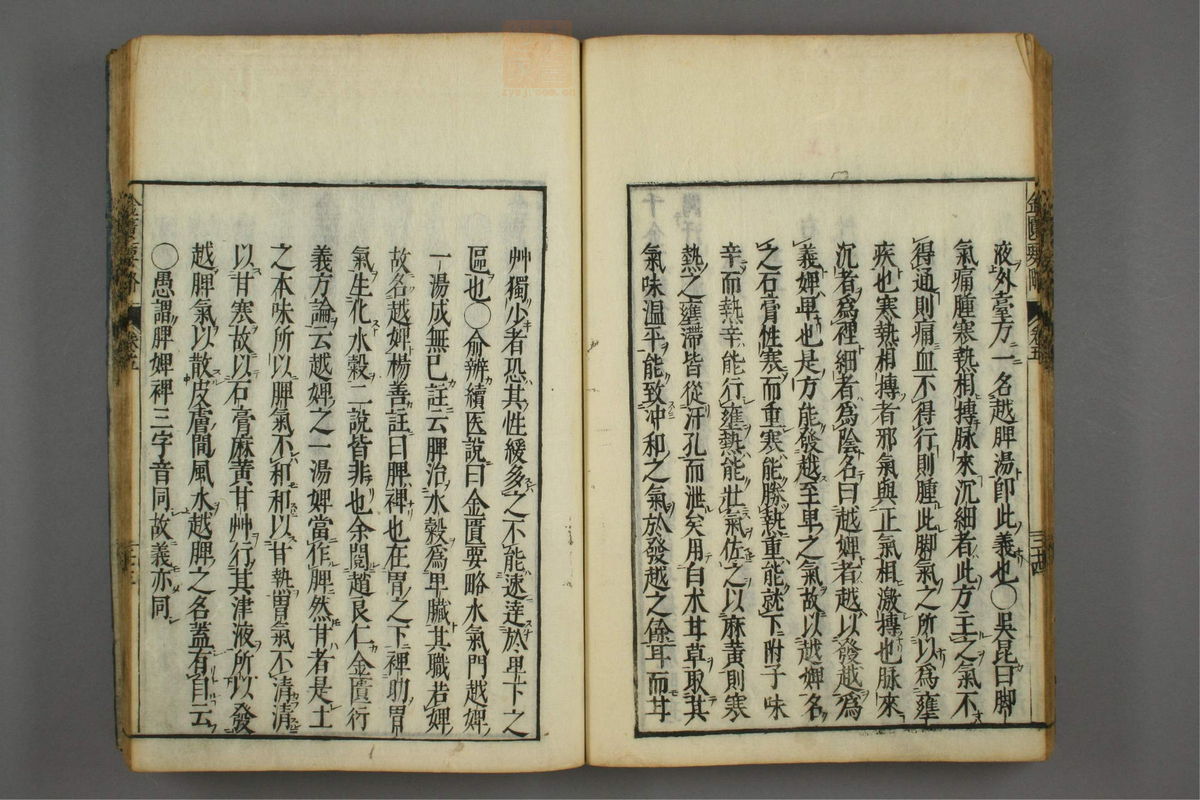 液外臺方一名越脾湯卽此義也○吳昆曰脚
氣痛腫寒熱相摶脉來沉細者此方主之氣不
得通則痛血不得行則腫此脚氣之所以爲壅
疾也寒熱相摶者邪氣與正氣相激摶也脉來
沉者爲裡細者為陰名曰越婢者越以發越爲
義婢卑也是方能發越至卑之氣故以越婢名
之石膏性寒而重寒能勝熱重能就下附子味
辛而熱辛能行壅熱能壯氣佐之以麻黃則寒
熱之壅滯皆從汗孔而泄矣用白朮甘草取其
氣味溫平能致冲和之氣於發越之餘耳而甘
金匱要略 卷五 三十四
艸獨少者恐其性緩多之不能速達於卑下之
區也○俞辨續医說曰金匱要略水氣門越婢
一湯成無已註云脾治水穀爲卑臟其職若婢
故名越婢楊善註曰脾裨也在胃之下裨助胃
氣生化水穀二說皆非也余閱趙良仁金匱衍
義方論云越婢之一湯婢當作脾然甘者是土
之本味所以脾氣不和和以甘熱胃氣不清清
以甘寒故以石膏麻黃甘艸行其津液所以發
越脾氣以散皮膚間風水越脾之名蓋有自云
○愚謂脾婢裨三字音同故義亦同
金匱要略 卷五